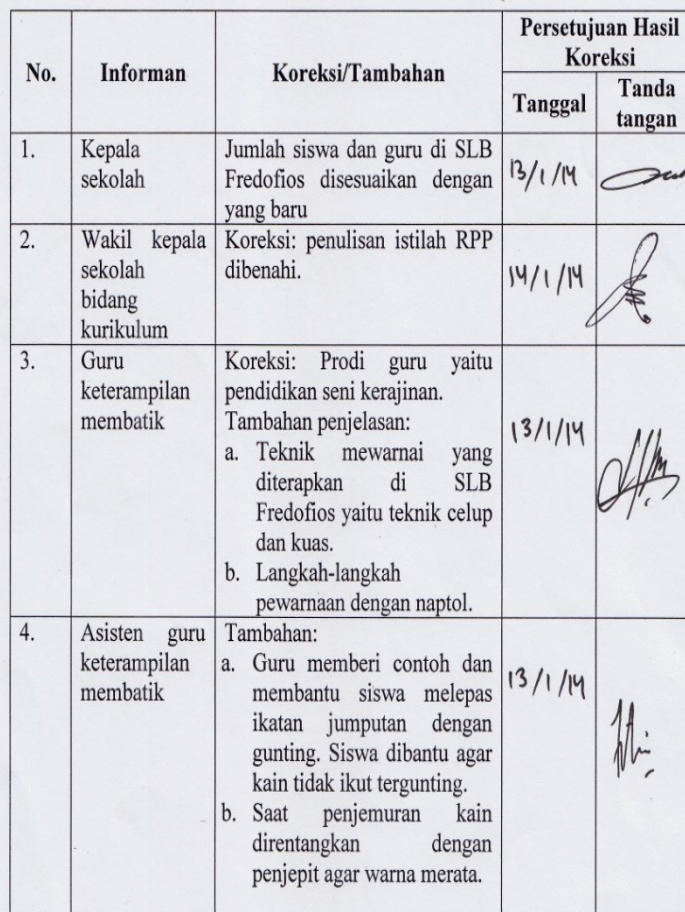 No.
Informan
Koreksi/Tambahan
Persetujuan Hasil
Koreksi
Tanggal
Tanda
tangan
1.
Kepala
sekolah
Jumlah siswa dan guru di SLB
Fredofios disesuaikan dengan
yang baru
13/1/14
2.
Wakil kepala
sekolah
bidang
kurikulum
Koreksi: penulisan istilah RPP
dibenahi.
14/1/14
3.
Guru
keterampilan
membatik
Koreksi: Prodi guru yaitu
pendidikan seni kerajinan.
Tambahan penjelasan:
a. Teknik mewarnai yang
diterapkan di SLB
Fredofios yaitu teknik celup
dan kuas.
b. Langkah-langkah
pewarnaan dengan naptol.
13/1/14
4.
Asisten guru
keterampilan
membatik
Tambahan:
a. Guru memberi contoh dan
membantu siswa melepas
ikatan jumputan dengan
gunting. Siswa dibantu agar
kain tidak ikut tergunting.
b. Saat penjemuran kain
direntangkan dengan
penjepit agar warna merata.
13/1/14